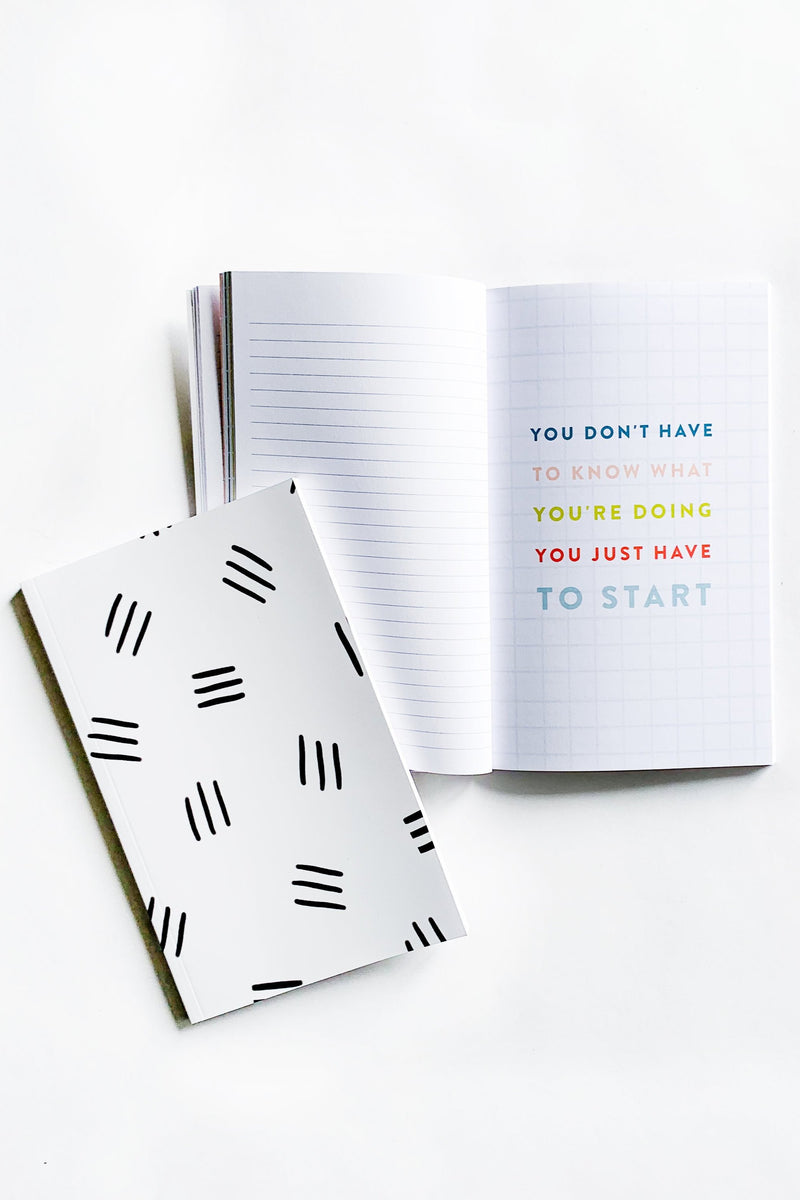 YOU DON'T HAVE
TO KNOW WHAT
YOU'RE DOING
YOU JUST HAVE
TO START